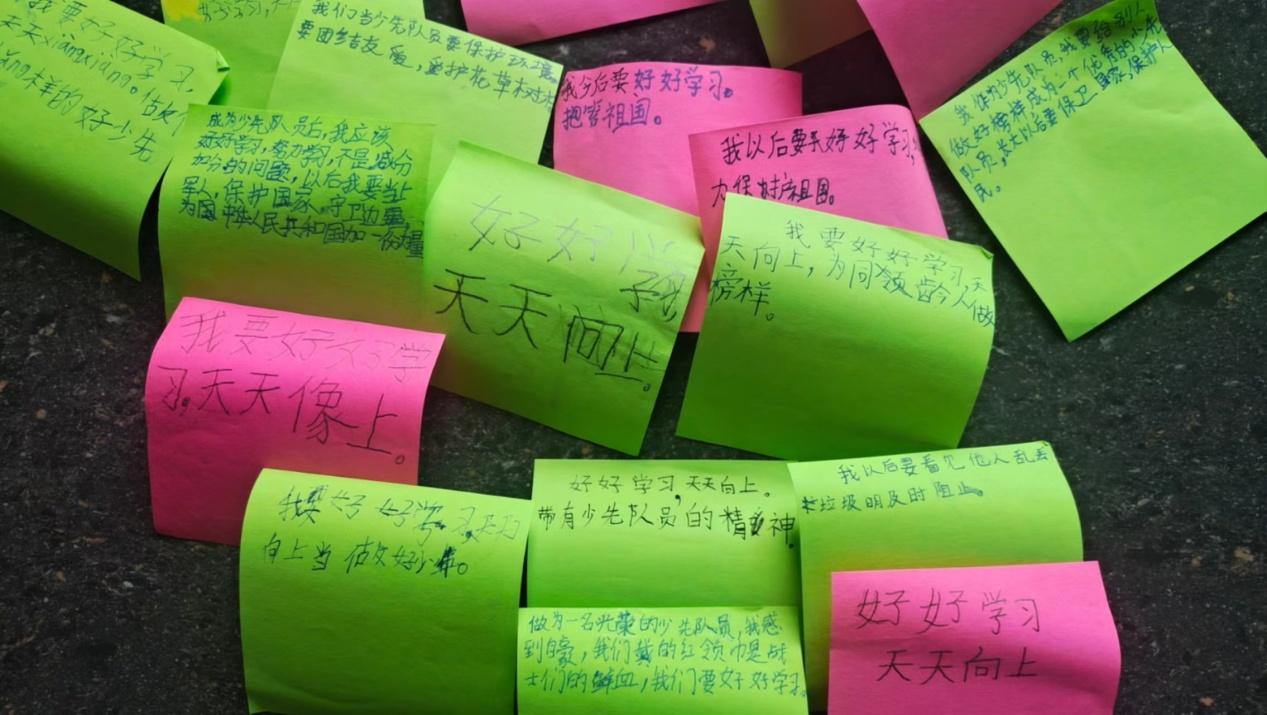 我要好好学习，
天天xiangxiang。做好
样的好少先
我们当少先队员要保护环境
要团结友爱，爱护花草树木
我今后要好好学习。
把官祖国。
我以后要好好学习，
力保护祖国。
我作为少先队员，我要给别人
做好榜样成为一个优秀的少先
队员，长大以后要保卫国家，保护人
民。
成为少先队员后，我应该
好好学习，努力学习，不是减分
加分的问题，以后我要当上
军人，保护国家，守卫边疆
为国中华人民共和国加一份力量
好好学习
天天向上。
我要好好学习天
天向上，为同领龄人做
榜样。
我要好好学
习，天天像上。
我要好好学习天天
向上当 做好少年。
好好学习，天天向上。
带有少先队员的精神
我以后要看见他人乱丢
垃圾明及时阻止。
做为一名光荣的少先队员，我感
到自豪，我们戴的红领巾是战
士们的鲜血，我们要好好学习。
好好学习
天天向上